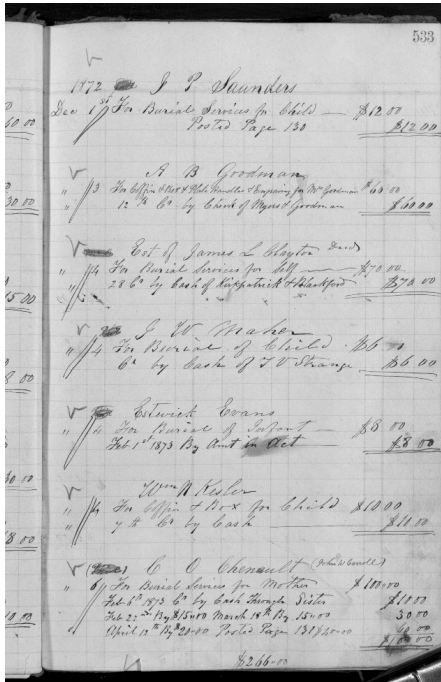 533
1872 J P Saunders
Dec 1st For Burial Services for Child $12.00
Posted Page 130 $12.00
A B Goodman
" 3 For Coffin & Box & Plate Handles & Engraving for Mrs Goodman $60.00
" 12th Cr by Check of Myers & Goodman $60.00
Est of James L Clayton Decd
" 4 For Burial Services for Self $70.00
" 28 Cr by Cash of Kirkpatrick & Blackford $70.00
J W Maher
" 4 For Burial of Child $6
" Cr by Cash of T V Strange $6.00
Estwick Evans
" 4 For Burial of Infant $8.00
" Feb 1st 1873 By Amt on Act $8.00
Wm N Kesler
" 4 For Coffin & Box for Child $10.00
" 7th Cr by Cash $10.00
C O Chenault
" 6 For Burial Services for Mother $100.00
Feb 6th 1873 Cr by Cash Through Sister $10.00
Feb 22nd By $15.00 March 18th By 15.00 30.00
April 12th By $20.00 Posted Page 131 $40.00
$266.00
00.00
30.00
5.00
8.00
30.00
8.00
10.00